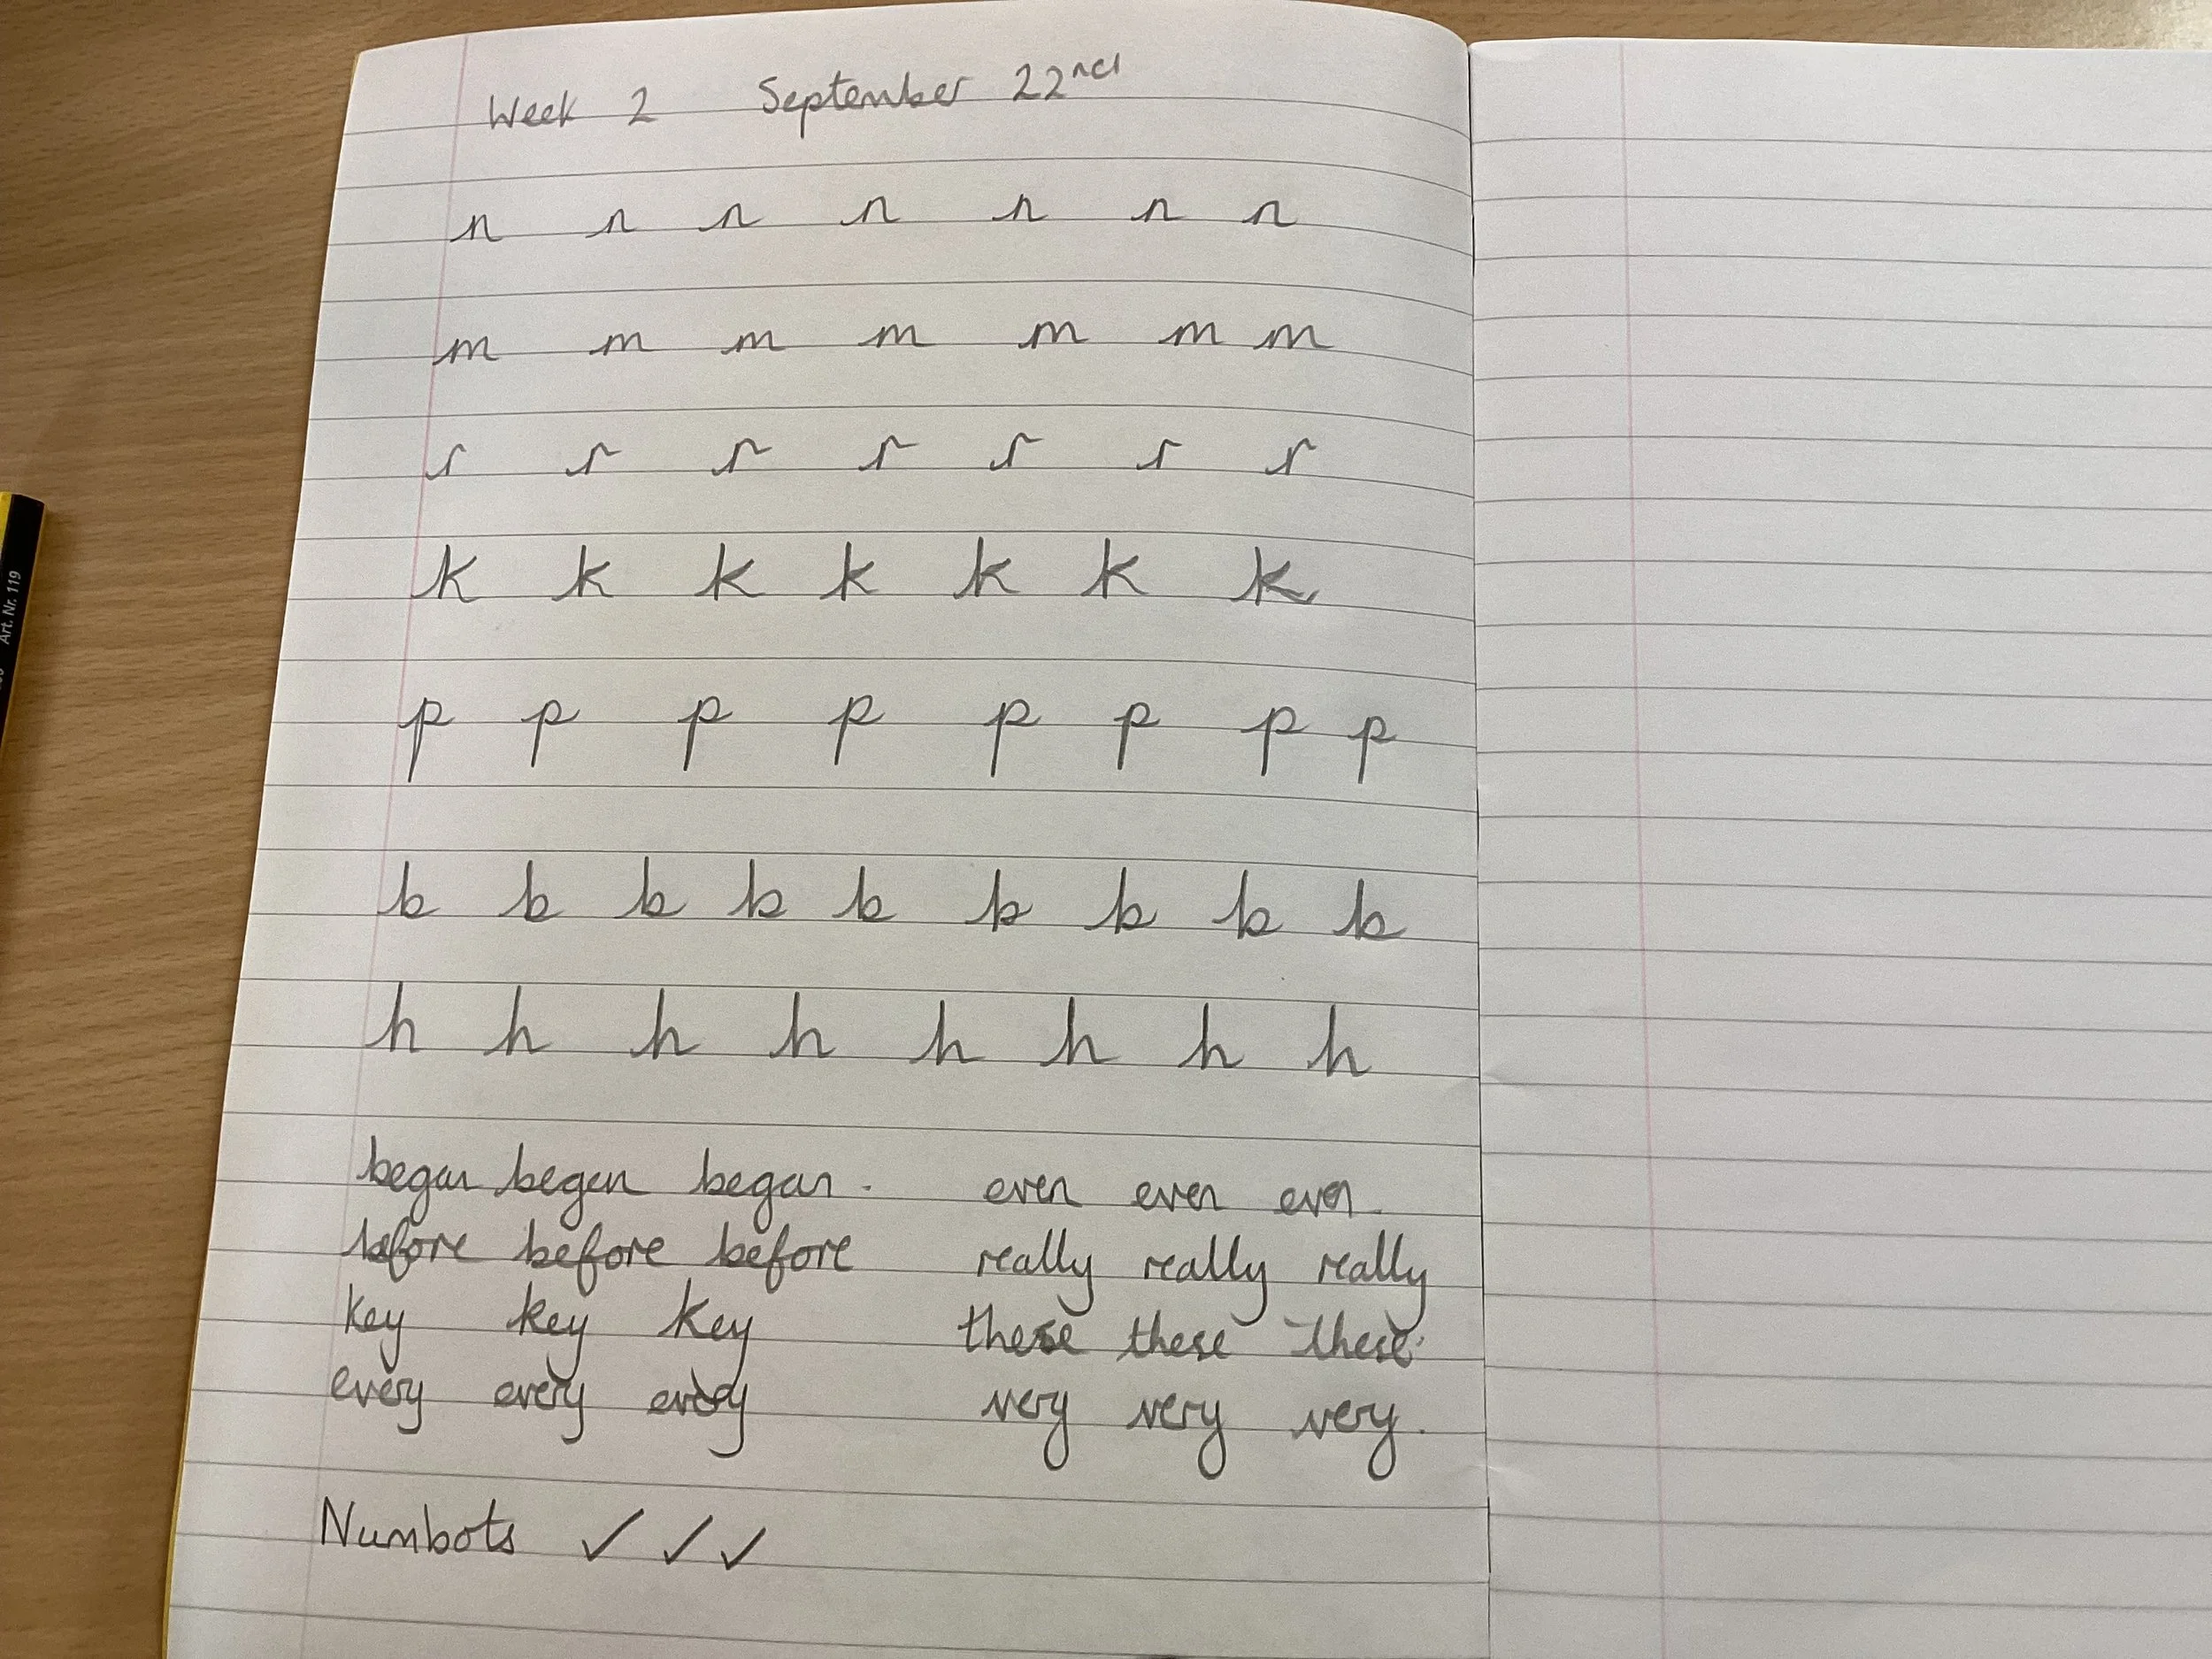 Week 2 September 22nd
n n n n n n n
m m m m m m m
r r r r r r r
k k k k k k k
p p p p p p p p
b b b b b b b b b
h h h h h h h h
began began began. even even even.
before before before really really really
key key key these these these.
every every every very very very.
Numbots ✓ ✓ ✓
Art. Nr. 119